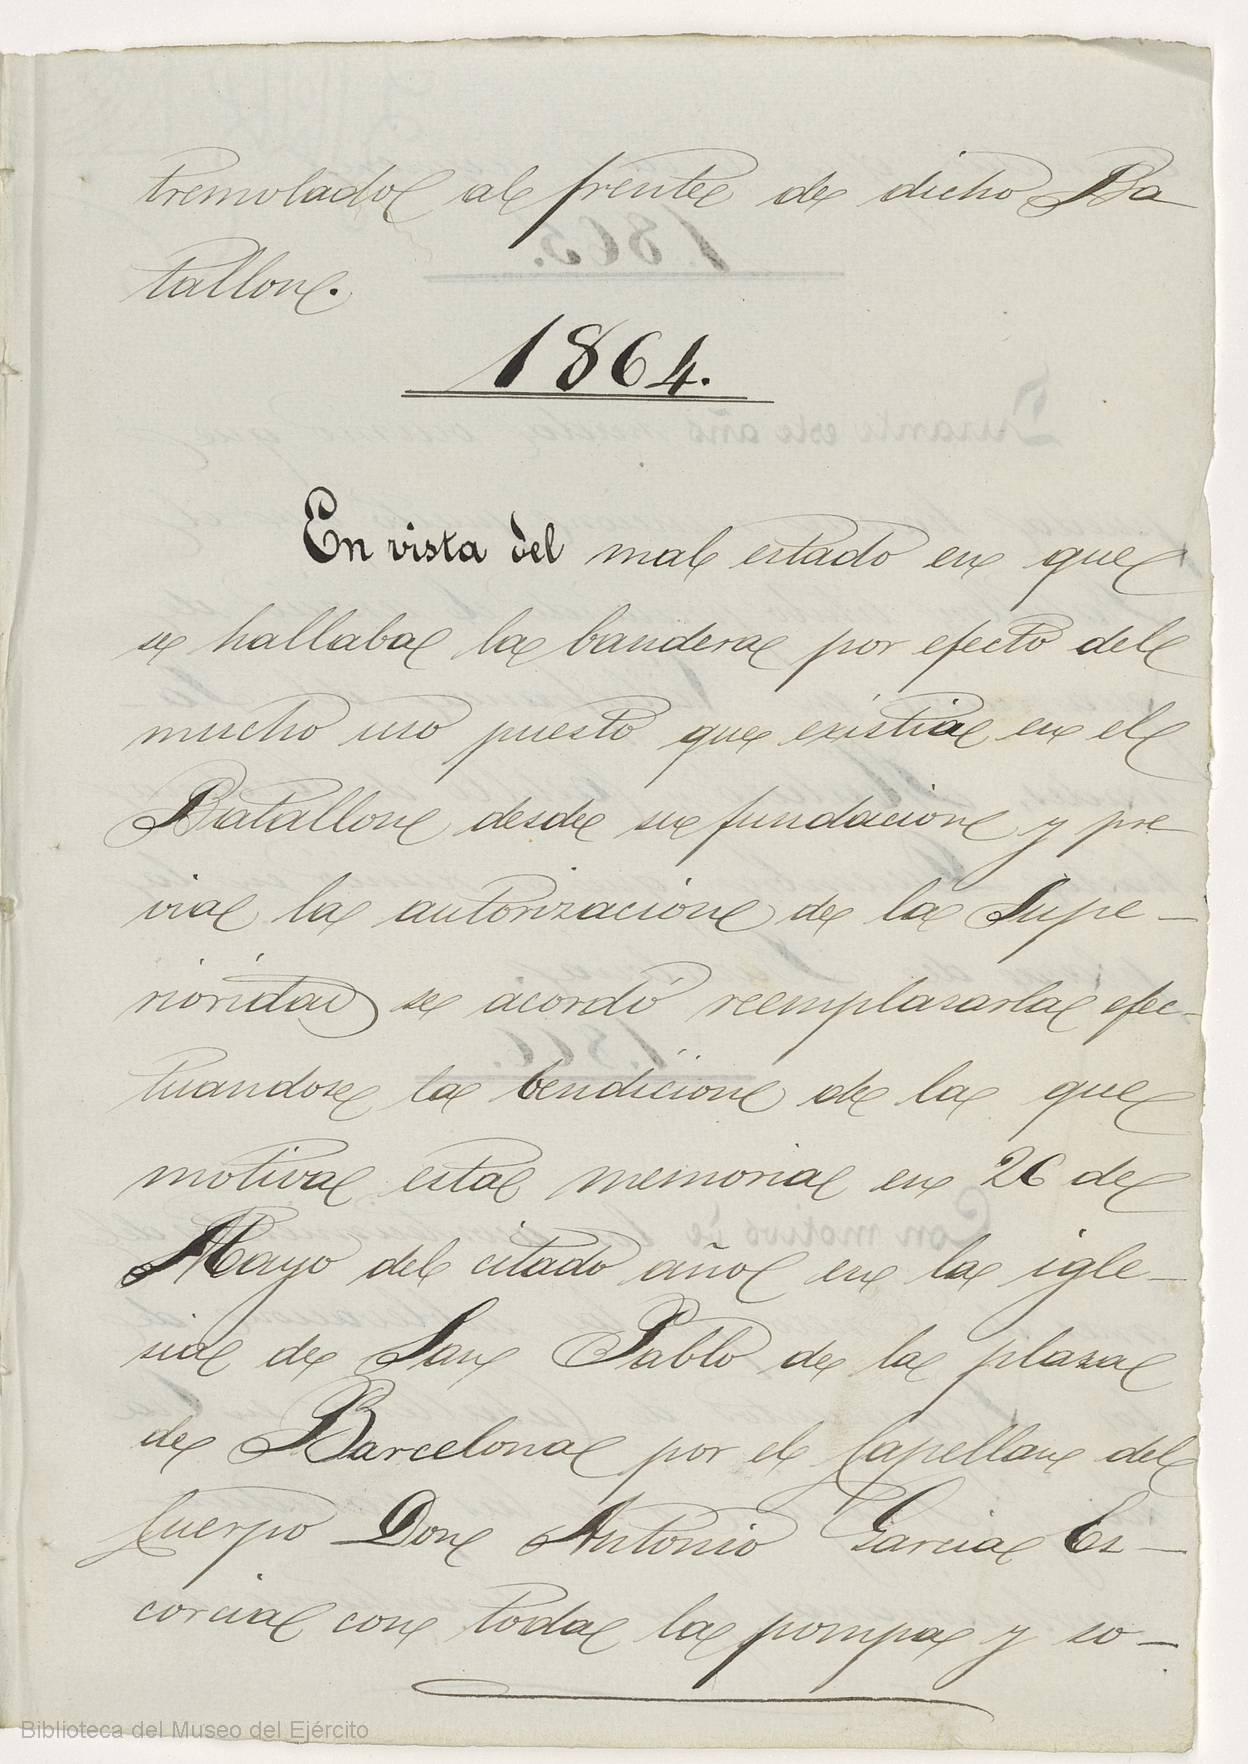 tremolado al frente de dicho Ba
tallon.
1864.
En vista del mal estado en que
se hallaba la bandera por efecto del
mucho uso puesto que existia en el
Batallon desde su fundacion y pre
via la autorizacion de la Supe-
rioridad se acordó reemplazarla efec-
tuandose la bendicion de la que
motiva esta memoria en 26 de
Mayo del citado año en la igle-
sia de San Pablo de la plaza
de Barcelona por el Capellan del
Cuerpo Don Antonio Garcia Es-
corcia con toda la pompa y so-
Biblioteca del Museo del Ejército